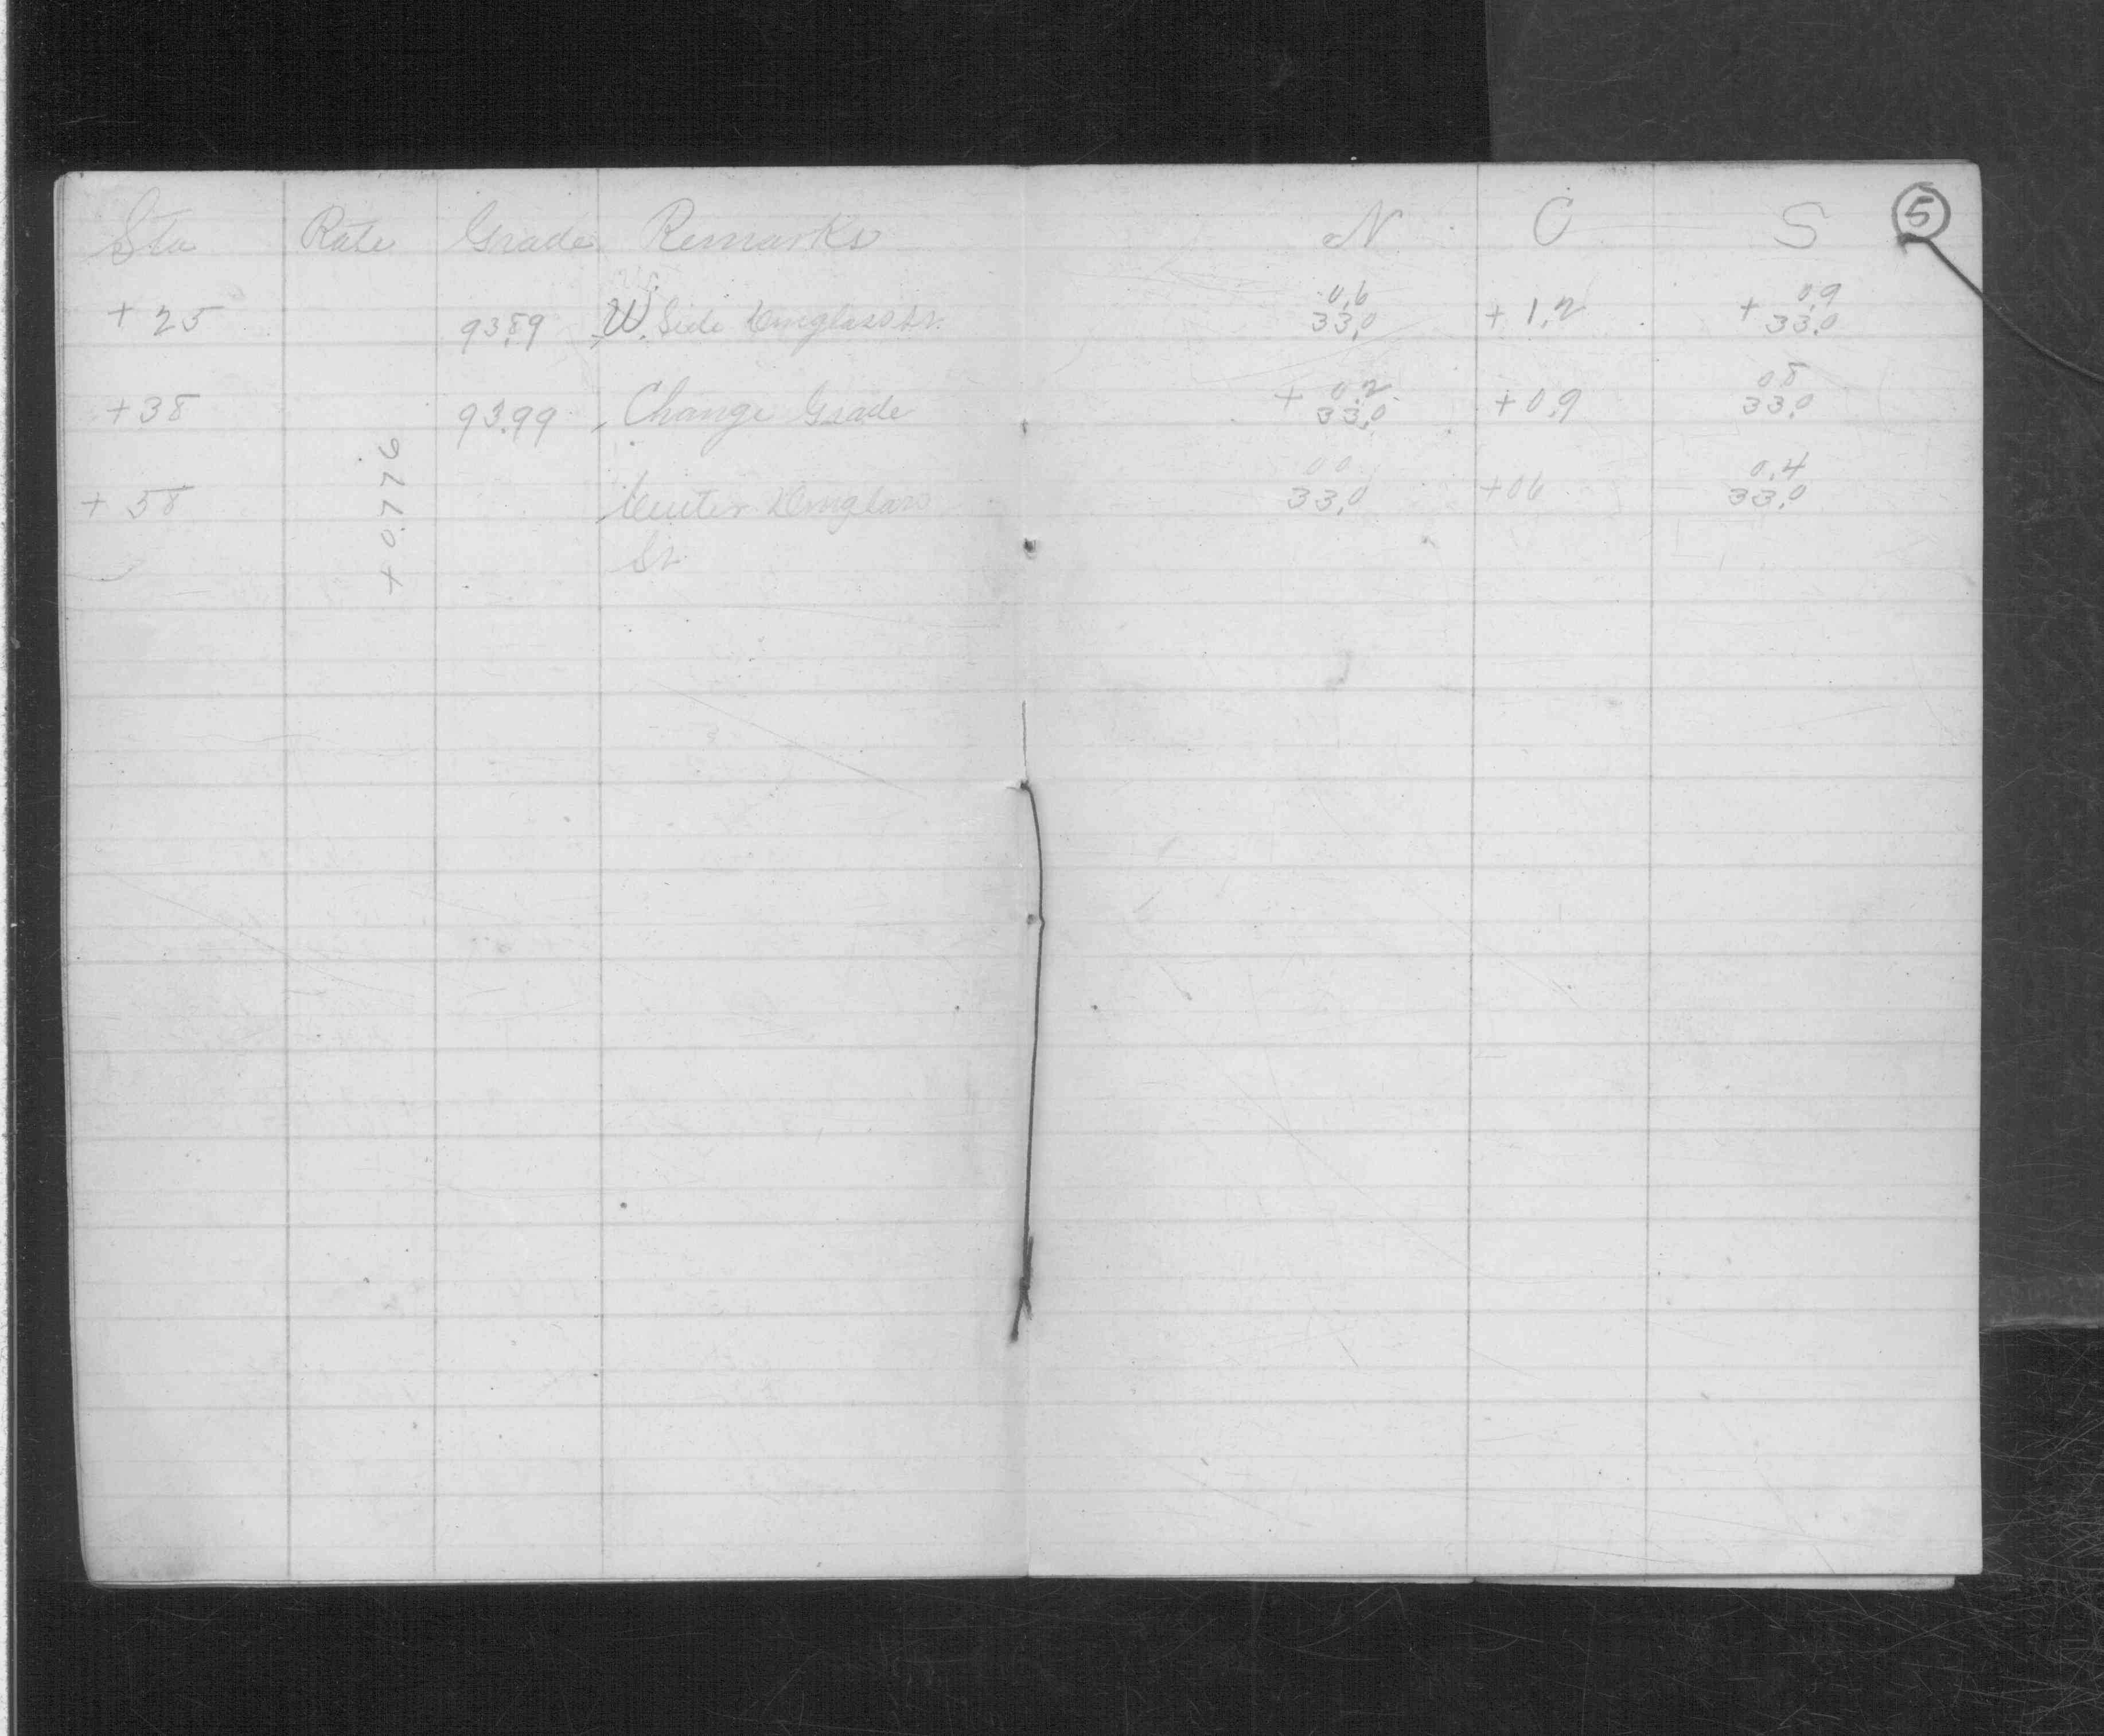 Sta Rate Grade Remarks N C S 5
0.6 0.9
+25 93.89 W. Side Douglass St. 33.0 +1.2 + 33.0
0.2 0.8
+38 93.99 Change Grade + 33.0 +0.9 33.0
00 0.4
+58 Center Douglass 33.0 +06 33.0
St.
+0.776